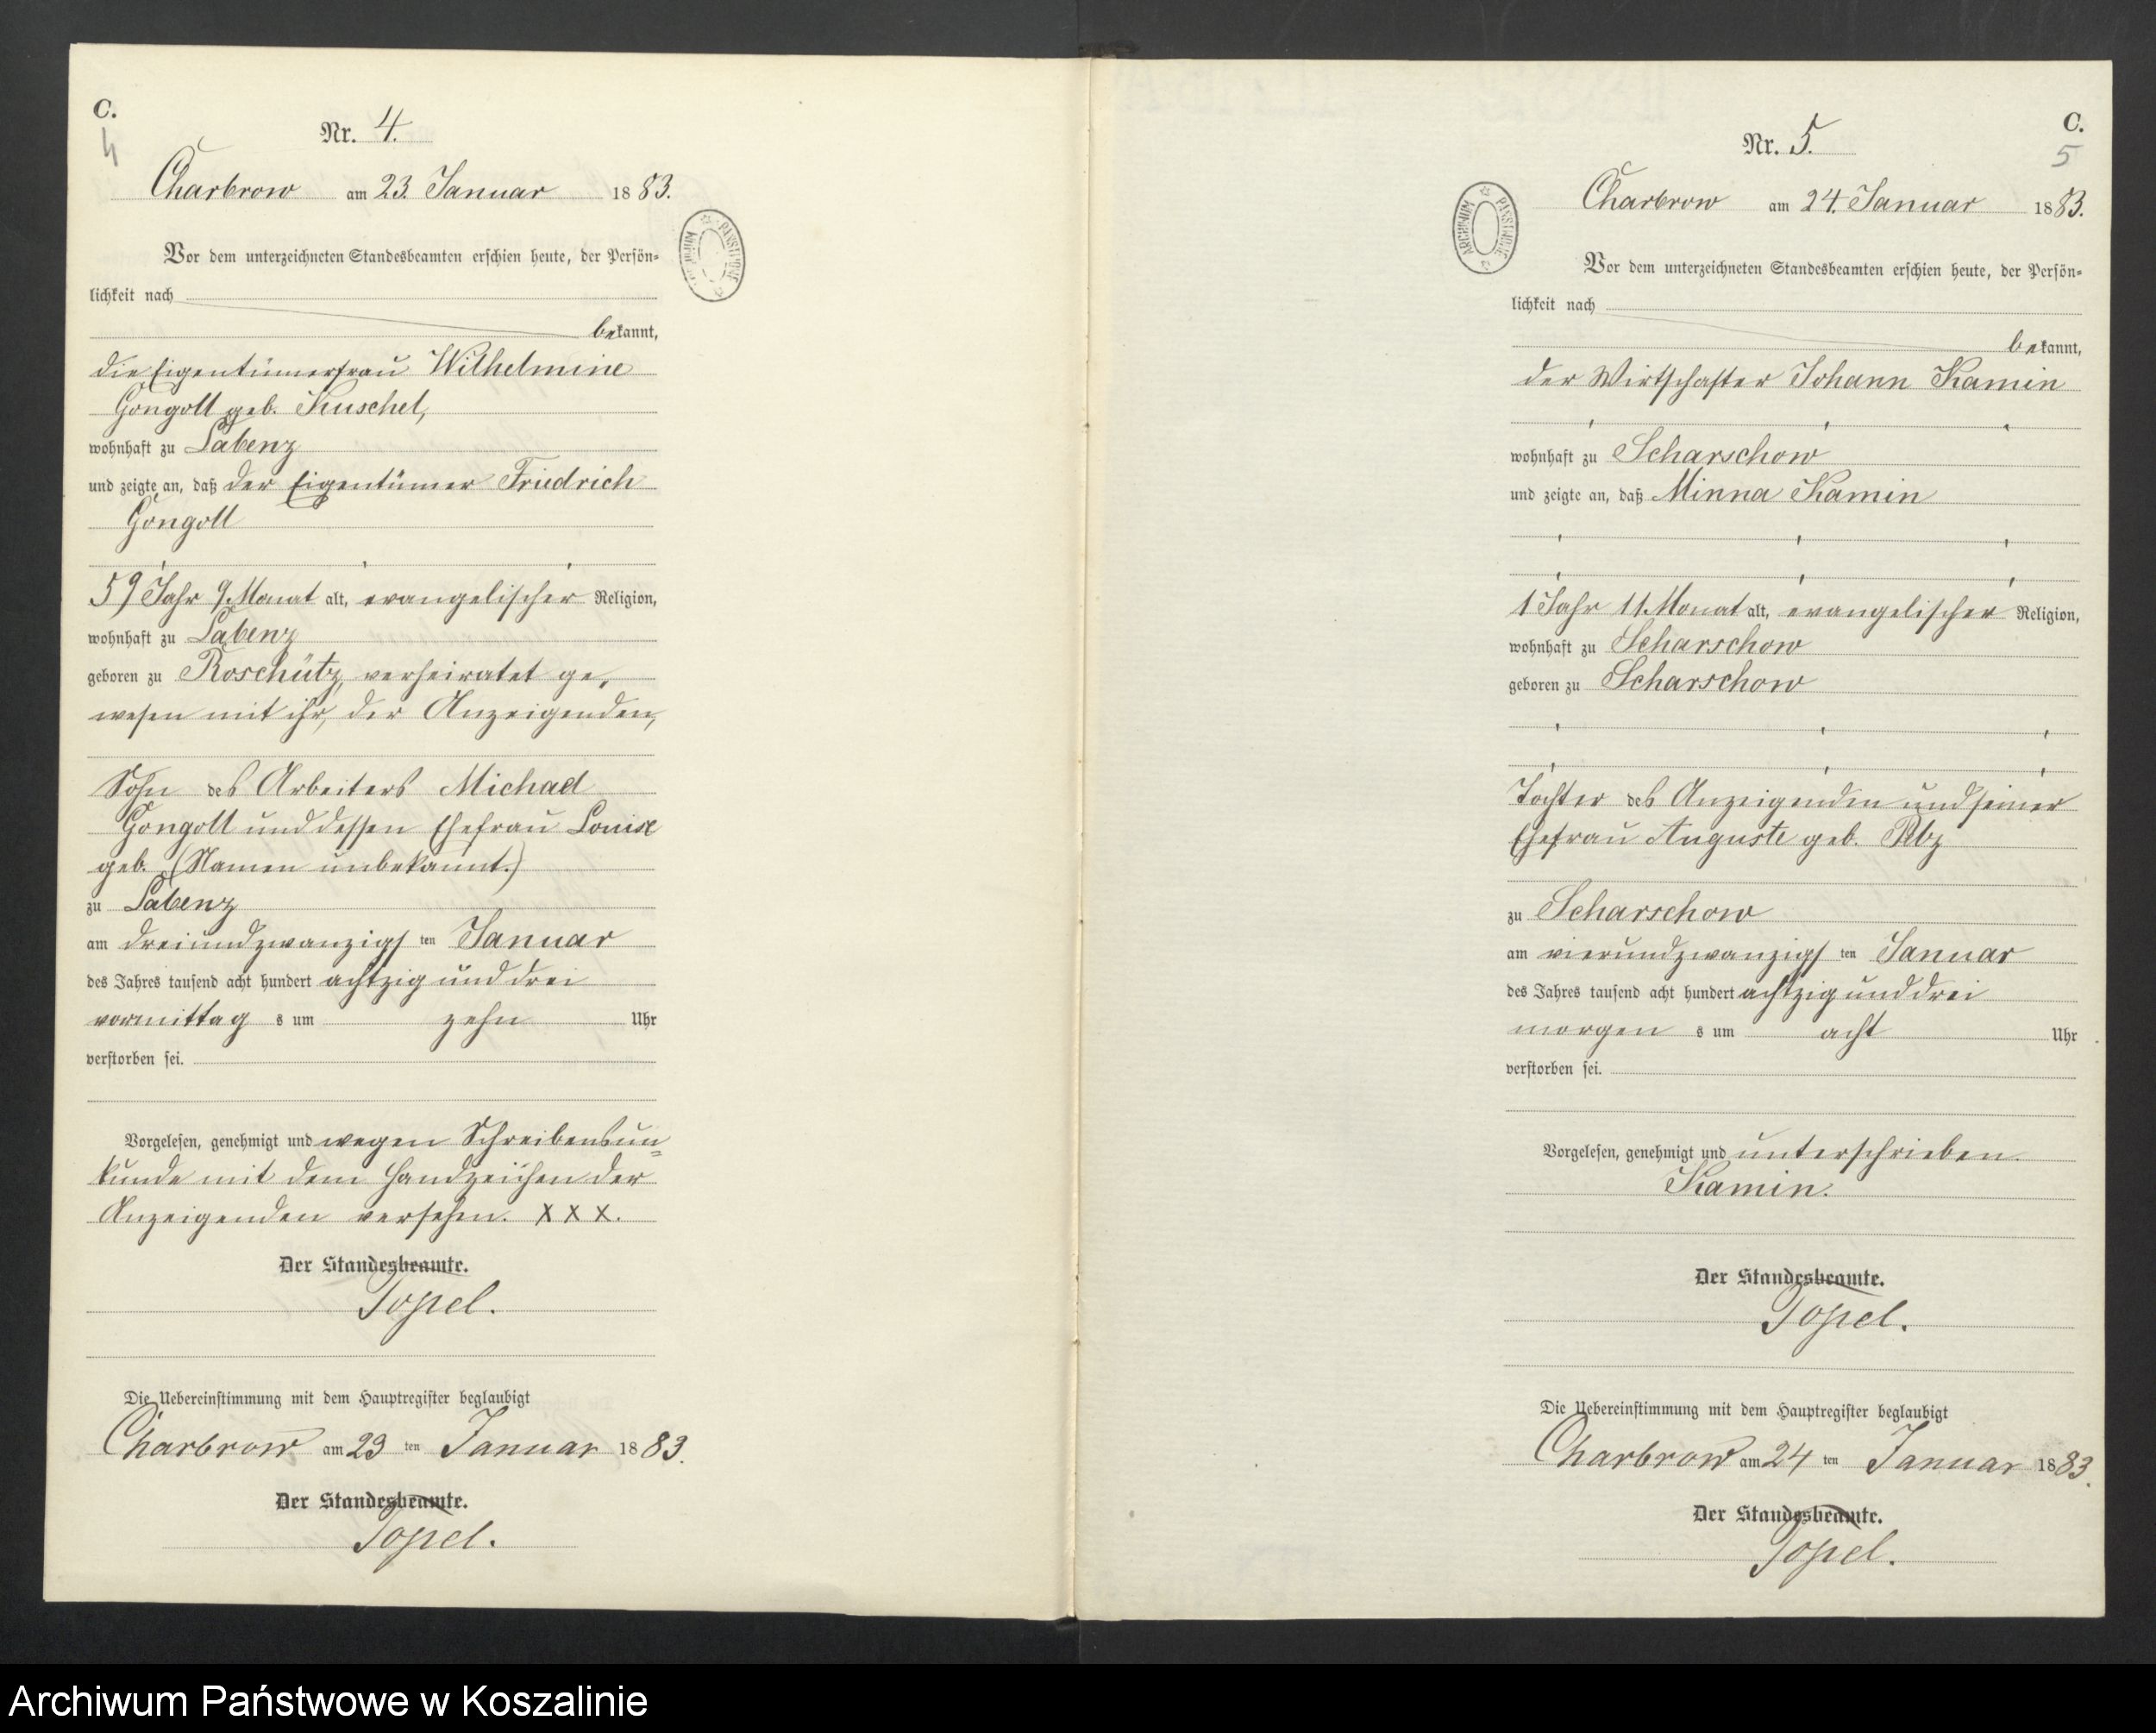 C.
4
Nr. 4.
Charbrow am 23. Januar 1883.
Vor dem unterzeichneten Standesbeamten erschien heute, der Persön-
lichkeit nach
bekannt,
die Eigentümerfrau Wilhelmine
Gongoll geb. Kuschel,
wohnhaft zu Labenz
und zeigte an, daß der Eigentümer Friedrich
Gongoll
59 Jahr 9 Monat alt, evangelischer Religion,
wohnhaft zu Labenz
geboren zu Roschütz, verheiratet ge,
wesen mit ihr, der Anzeigenden,
Sohn des Arbeiters Michael
Gongoll und dessen Ehefrau Louise
geb. (Namen unbekannt.)
zu Labenz
am dreiundzwanzigsten Januar
des Jahres tausend acht hundert achtzig und drei
vormittags um zehn Uhr
verstorben sei.
Vorgelesen, genehmigt und wegen Schreibensun-
kunde mit dem Handzeichen der
Anzeigenden versehen. X X X.
Der Standesbeamte.
Topel.
Die Uebereinstimmung mit dem Hauptregister beglaubigt
Charbrow am 23 ten Januar 1883.
Der Standesbeamte.
Topel.
ARCHIWUM PAŃSTWOWE
C.
5
Nr. 5.
Charbrow am 24. Januar 1883.
ARCHIWUM PAŃSTWOWE
Vor dem unterzeichneten Standesbeamten erschien heute, der Persön-
lichkeit nach
bekannt,
der Wirtschafter Johann Kamin
wohnhaft zu Scharschow
und zeigte an, daß Minna Kamin
1 Jahr 11 Monat alt, evangelischer Religion,
wohnhaft zu Scharschow
geboren zu Scharschow
Tochter des Anzeigenden und seiner
Ehefrau Auguste geb.
zu Scharschow
am vierundzwanzigsten Januar
des Jahres tausend acht hundert achtzig und drei
morgens um acht Uhr
verstorben sei.
Vorgelesen, genehmigt und unterschrieben.
Kamin.
Der Standesbeamte.
Topel.
Die Uebereinstimmung mit dem Hauptregister beglaubigt
Charbrow am 24 ten Januar 1883.
Der Standesbeamte.
Topel.
Archiwum Państwowe w Koszalinie